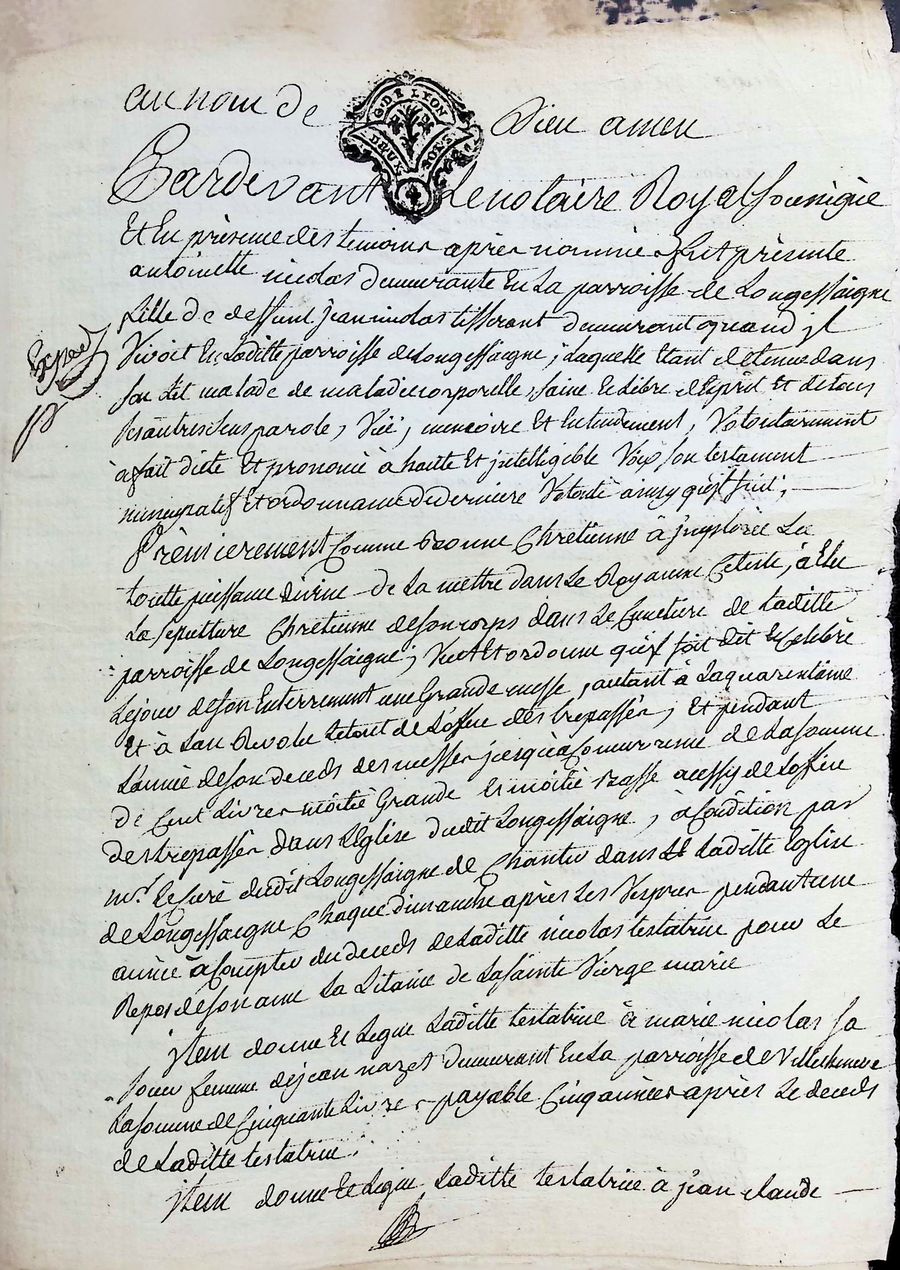 au nom de Dieu amen
G. DE LYON
DEUX SOLS
Pardevant Le notaire Royal Sousigné
Et En présence des temoins après nommés fut présente
antoinette nicolas demeurante En La parroisse de Longessaigne
fille de deffunt Jean nicolas tisserant demeurant quand jl
Vivoit En Laditte parroisse de Longessaigne; Laquelle Etant detenue dans
Expedié
son Lit malade de maladie corporelle, saine Et Libre d'Esprit Et de tous
ses autres sens parole, Vüe, memoire Et Entendement, Volontairement
à fait dicté Et prononcé à haute Et jntelligible Voix son testament
nuncupatif Et ordonnance de derniere Volonté ainsy qu'il suit;
Prèmierement Comme bonne Chrétienne à jmplorée La
toutte puissance divine de La mettre dans Le Royaume Celeste, à Elu
La sepulture Chrétienne de son corps dans Le Cimetiere de Laditte
parroisse de Longessaigne; Veut Et ordonne qu'il soit dit Et Celébré
Le jour de son Enterrement une Grande messe, autant à La quarentaine
Et à L'an Revolu Le tout de L'office des trepassés, Et pendant
L'année de son deceds des messes jusqu'à Concurrence de La somme
de Cent Livres moitié Grande Et moitié Basse aussy de L'office
des trepassés dans L'Eglise dudit Longessaigne, à Condition par
mr. Le Curé dudit Longessaigne de Chanter dans Laditte Eglise
de Longessaigne Chaque dimanche après Les Vespres pendant une
année à Compter du deceds de Laditte nicolas testatrice pour Le
Repos de son ame La Litanie de La Sainte Vierge marie
jtem donne Et Legue Laditte testatrice à marie nicolas sa
soeur femme de jean nazet demeurant En La parroisse de Villechenève
La somme de Cinquante Livres payable Cinq années après Le deceds
de Laditte testatrice;
jtem donne Et Legue Laditte testatrice à jean claude